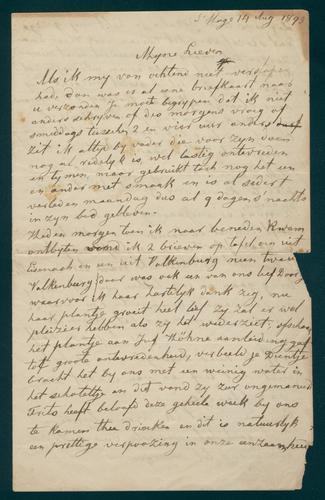 s'Hage 14 Aug 1893
Mijne Lieven
Als ik my van ochtend niet
had, dan was er al eene briefkaart naar
u verzonden Je moet begrijpen dat ik niet
anders schrijven of des morgens vroeg of
smiddags tusschen 2 en vier uur anders
zit ik altyd by vader die voor zyn doen
nog al redelyk is, wel lastig ontevreden
en maar gebruikt toch nog het een
en ander met smaak en is al sedert
verleden maandag dus al 9 dagen snachts
in zyn bed gebleven.
Heden morgen toen ik naar beneden kwam
ontbyten vond ik 2 brieven op tafel een uit
Eisenach en een uit Valkenburg neen twee uit
Valkenburg daar was ook een van ons lief
waarvoor ik haar hartelyk dank zeg, nu
haar plantje groeit heel lief zy zal er wel
pleizier hebben als zy het wederziet,
het plantje aan Juf Höhne aanleiding gaf
tot groote ontevredenheid, verbeeld je Dientje
bracht het by ons met een weinig water in
het schoteltje en dit vond zy zoo ongemanierd
Frits heeft beloofd deze geheele week by ons
te komen thee drinken en dit is natuurlyk
een prettige verpoozing in onze eenzaamheid